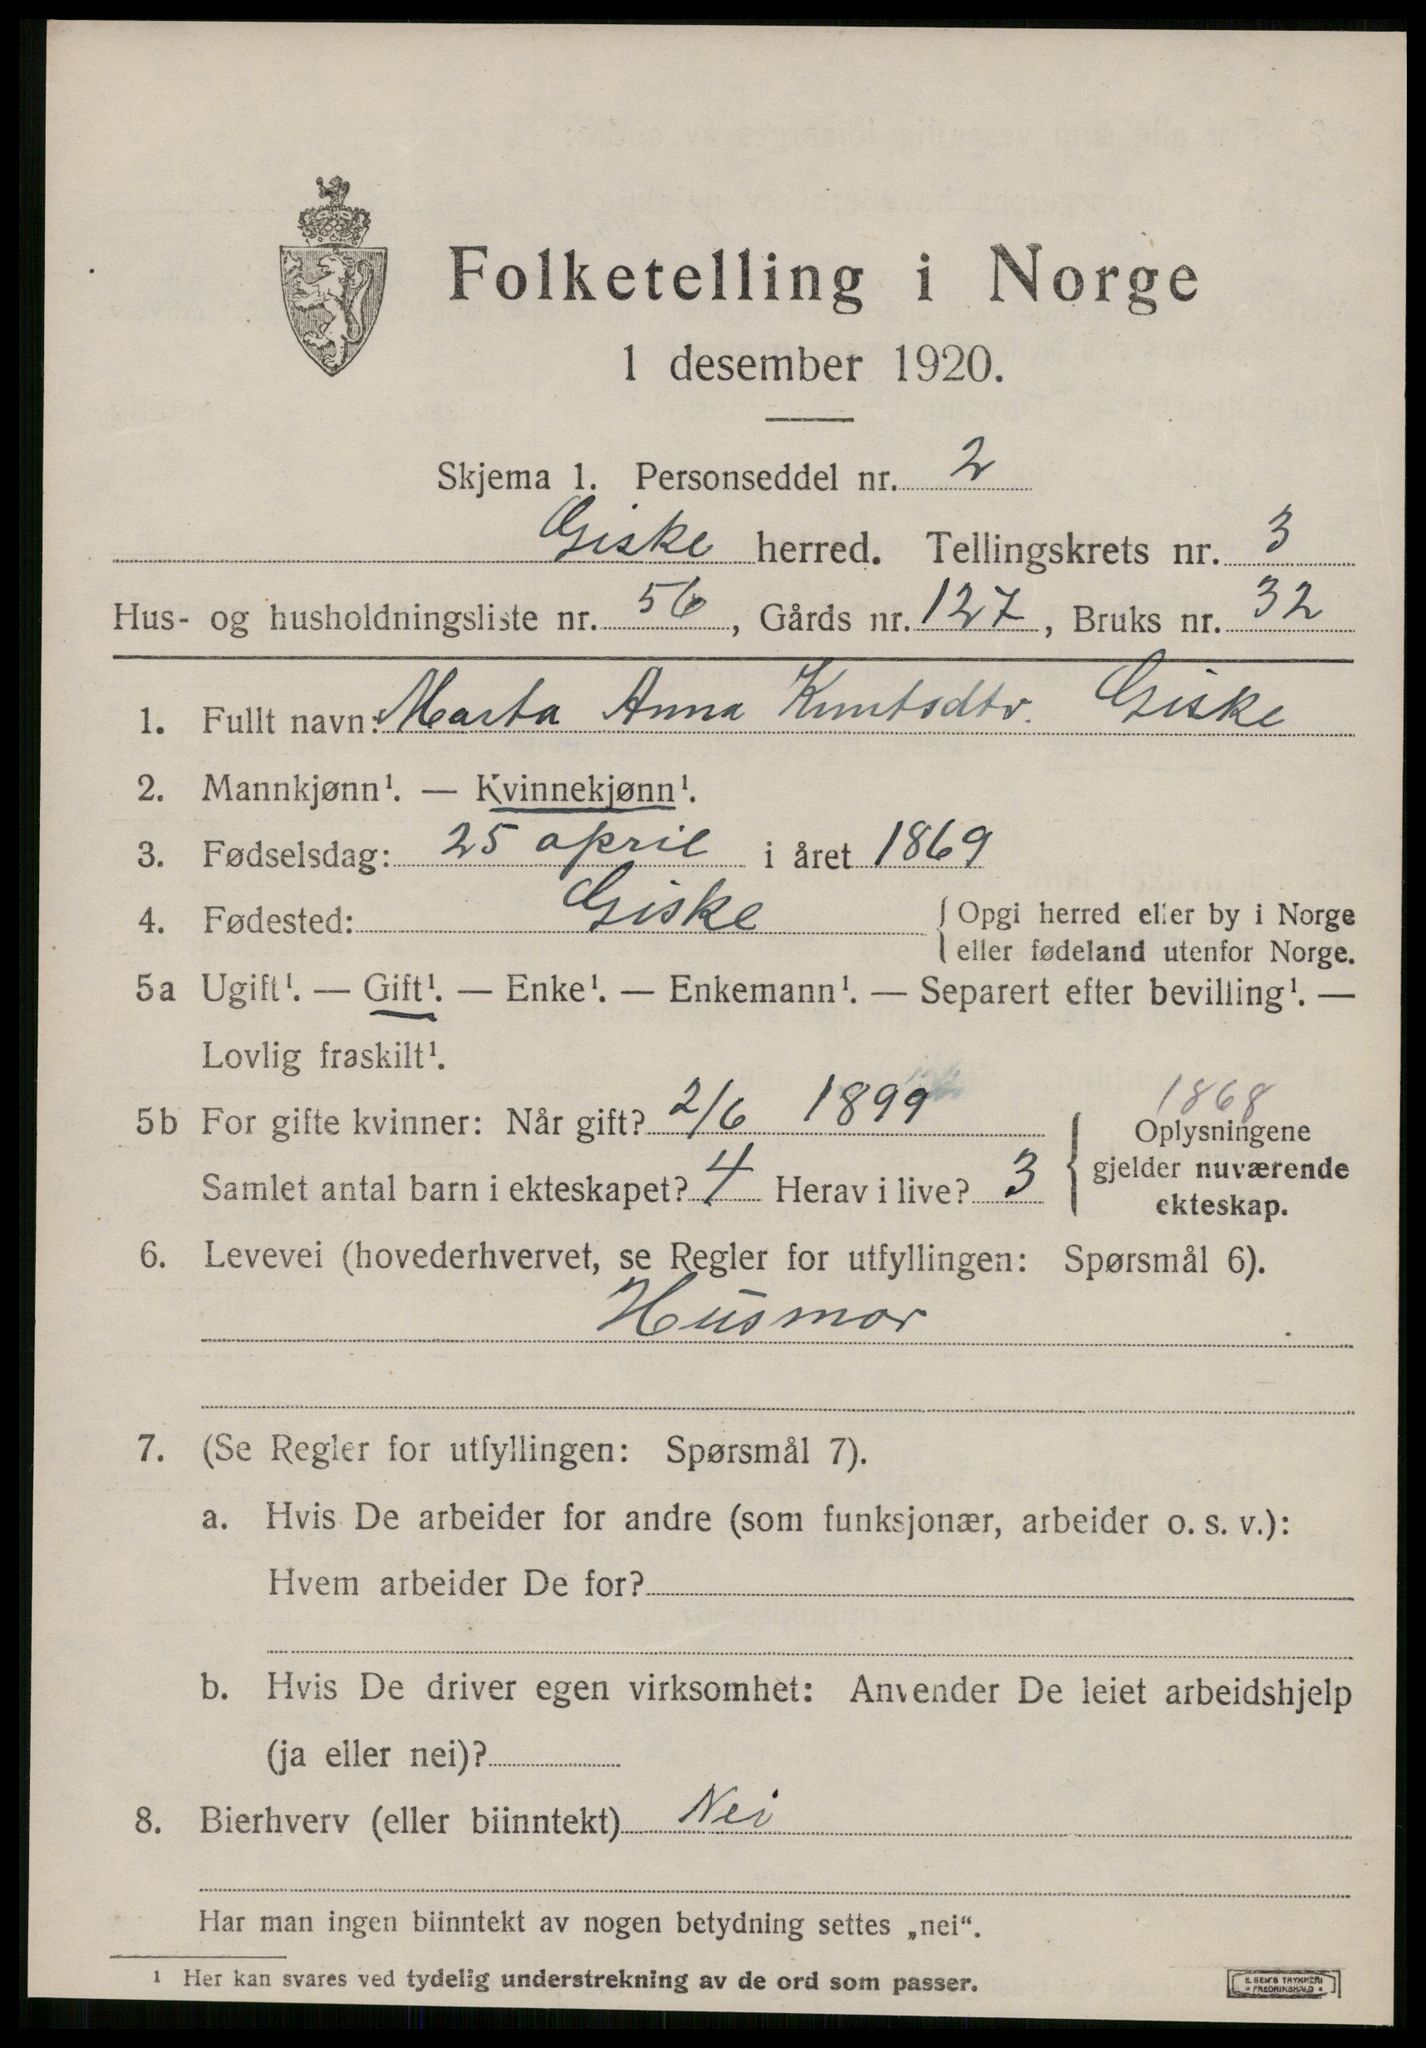 Folketelling i Norge
1 desember 1920.
Skjema 1. Personseddel nr. 2
Giske herred. Tellingskrets nr. 3
Hus- og husholdningsliste nr. 56, Gårds nr. 127, Bruks nr. 32
1. Fullt navn: Marta Anna Knutsdtr. Giske
2. Mannkjønn¹. — Kvinnekjønn¹.
3. Fødselsdag: 25 april i året 1869
4. Fødested: Giske { Opgi herred eller by i Norge
eller fødeland utenfor Norge.
5a Ugift¹. — Gift¹. — Enke¹. — Enkemann¹. — Separert efter bevilling¹. —
Lovlig fraskilt¹.
1868
5b For gifte kvinner: Når gift? 2/6 1899 { Oplysningene
gjelder nuværende
Samlet antal barn i ekteskapet? 4 Herav i live? 3
ekteskap.
6. Levevei (hovederhvervet, se Regler for utfyllingen: Spørsmål 6).
Husmor
7. (Se Regler for utfyllingen: Spørsmål 7).
a. Hvis De arbeider for andre (som funksjonær, arbeider o. s. v.):
Hvem arbeider De for?
b. Hvis De driver egen virksomhet: Anvender De leiet arbeidshjelp
(ja eller nei)?
8. Bierhverv (eller biinntekt) Nei
Har man ingen biinntekt av nogen betydning settes „nei“.
¹ Her kan svares ved tydelig understrekning av de ord som passer.
E. SEM'S TRYKKERI
* FREDRIKSHALD *